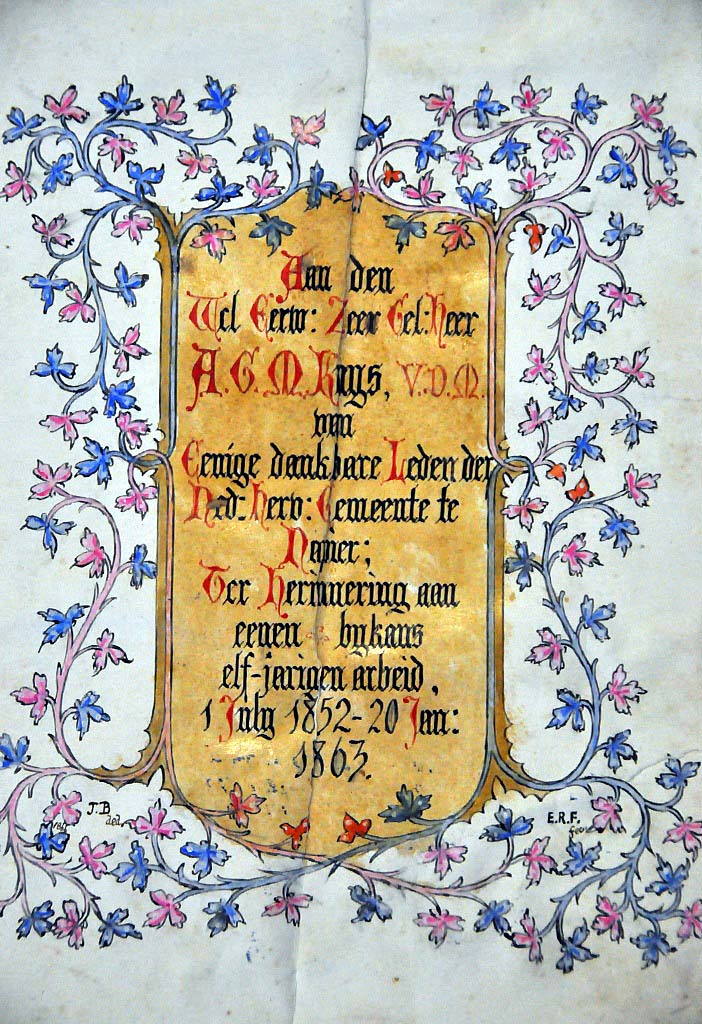 Aan den
Wel Eerw: Zeer Gel: Heer
A. G. M. Kuys, V.D.M.
van
Eenige dankbare Leden der
Ned: Herv: Gemeente te
Napier;
Ter Herinnering aan
eenen bykans
elf-jarigen arbeid,
1 July 1852-20 Jan:
1863.
J.B
ded.
E.R.F.